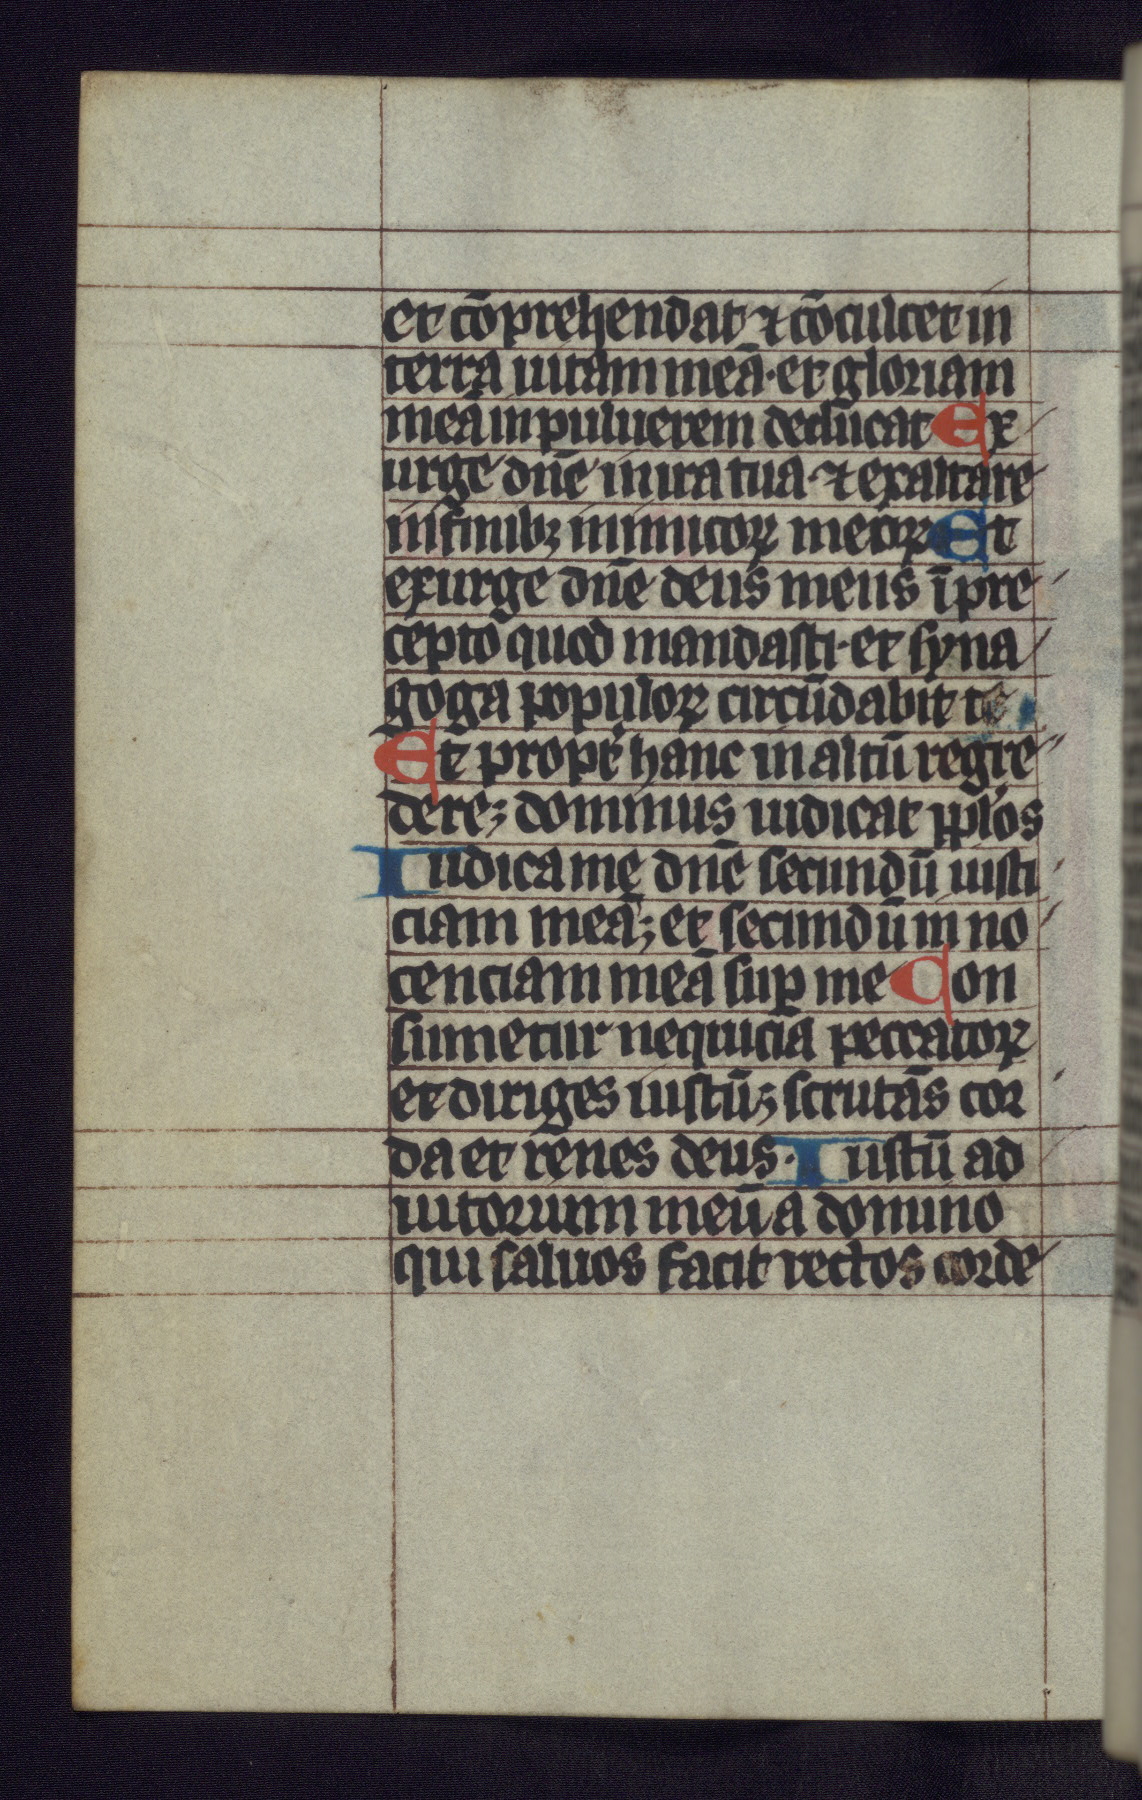 et cōprehendat ⁊ cōculcet in
terra uitam meā·et gloriam
meā in puluerem deducat Ex
urge dn̄e in ira tua·⁊ exaltare
in finibꝫ inimicoꝝ meoꝝ Et
exurge dn̄e deus meus ī pre
cepto quod mandasti·et syna
goga populoꝝ circūdabit te
Et propt̓ hanc in altū regre
dere; dominus iudicat pplos
Iudica me dn̄e secundū iusti
ciam meā; et secundū in no
cenciam meā sup me Con
sumetur nequicia peccatoꝝ
et diriges iustū; scrutās cor
da et renes deus·Iustū ad
iutorium meū a domino
qui saluos facit rectos corde